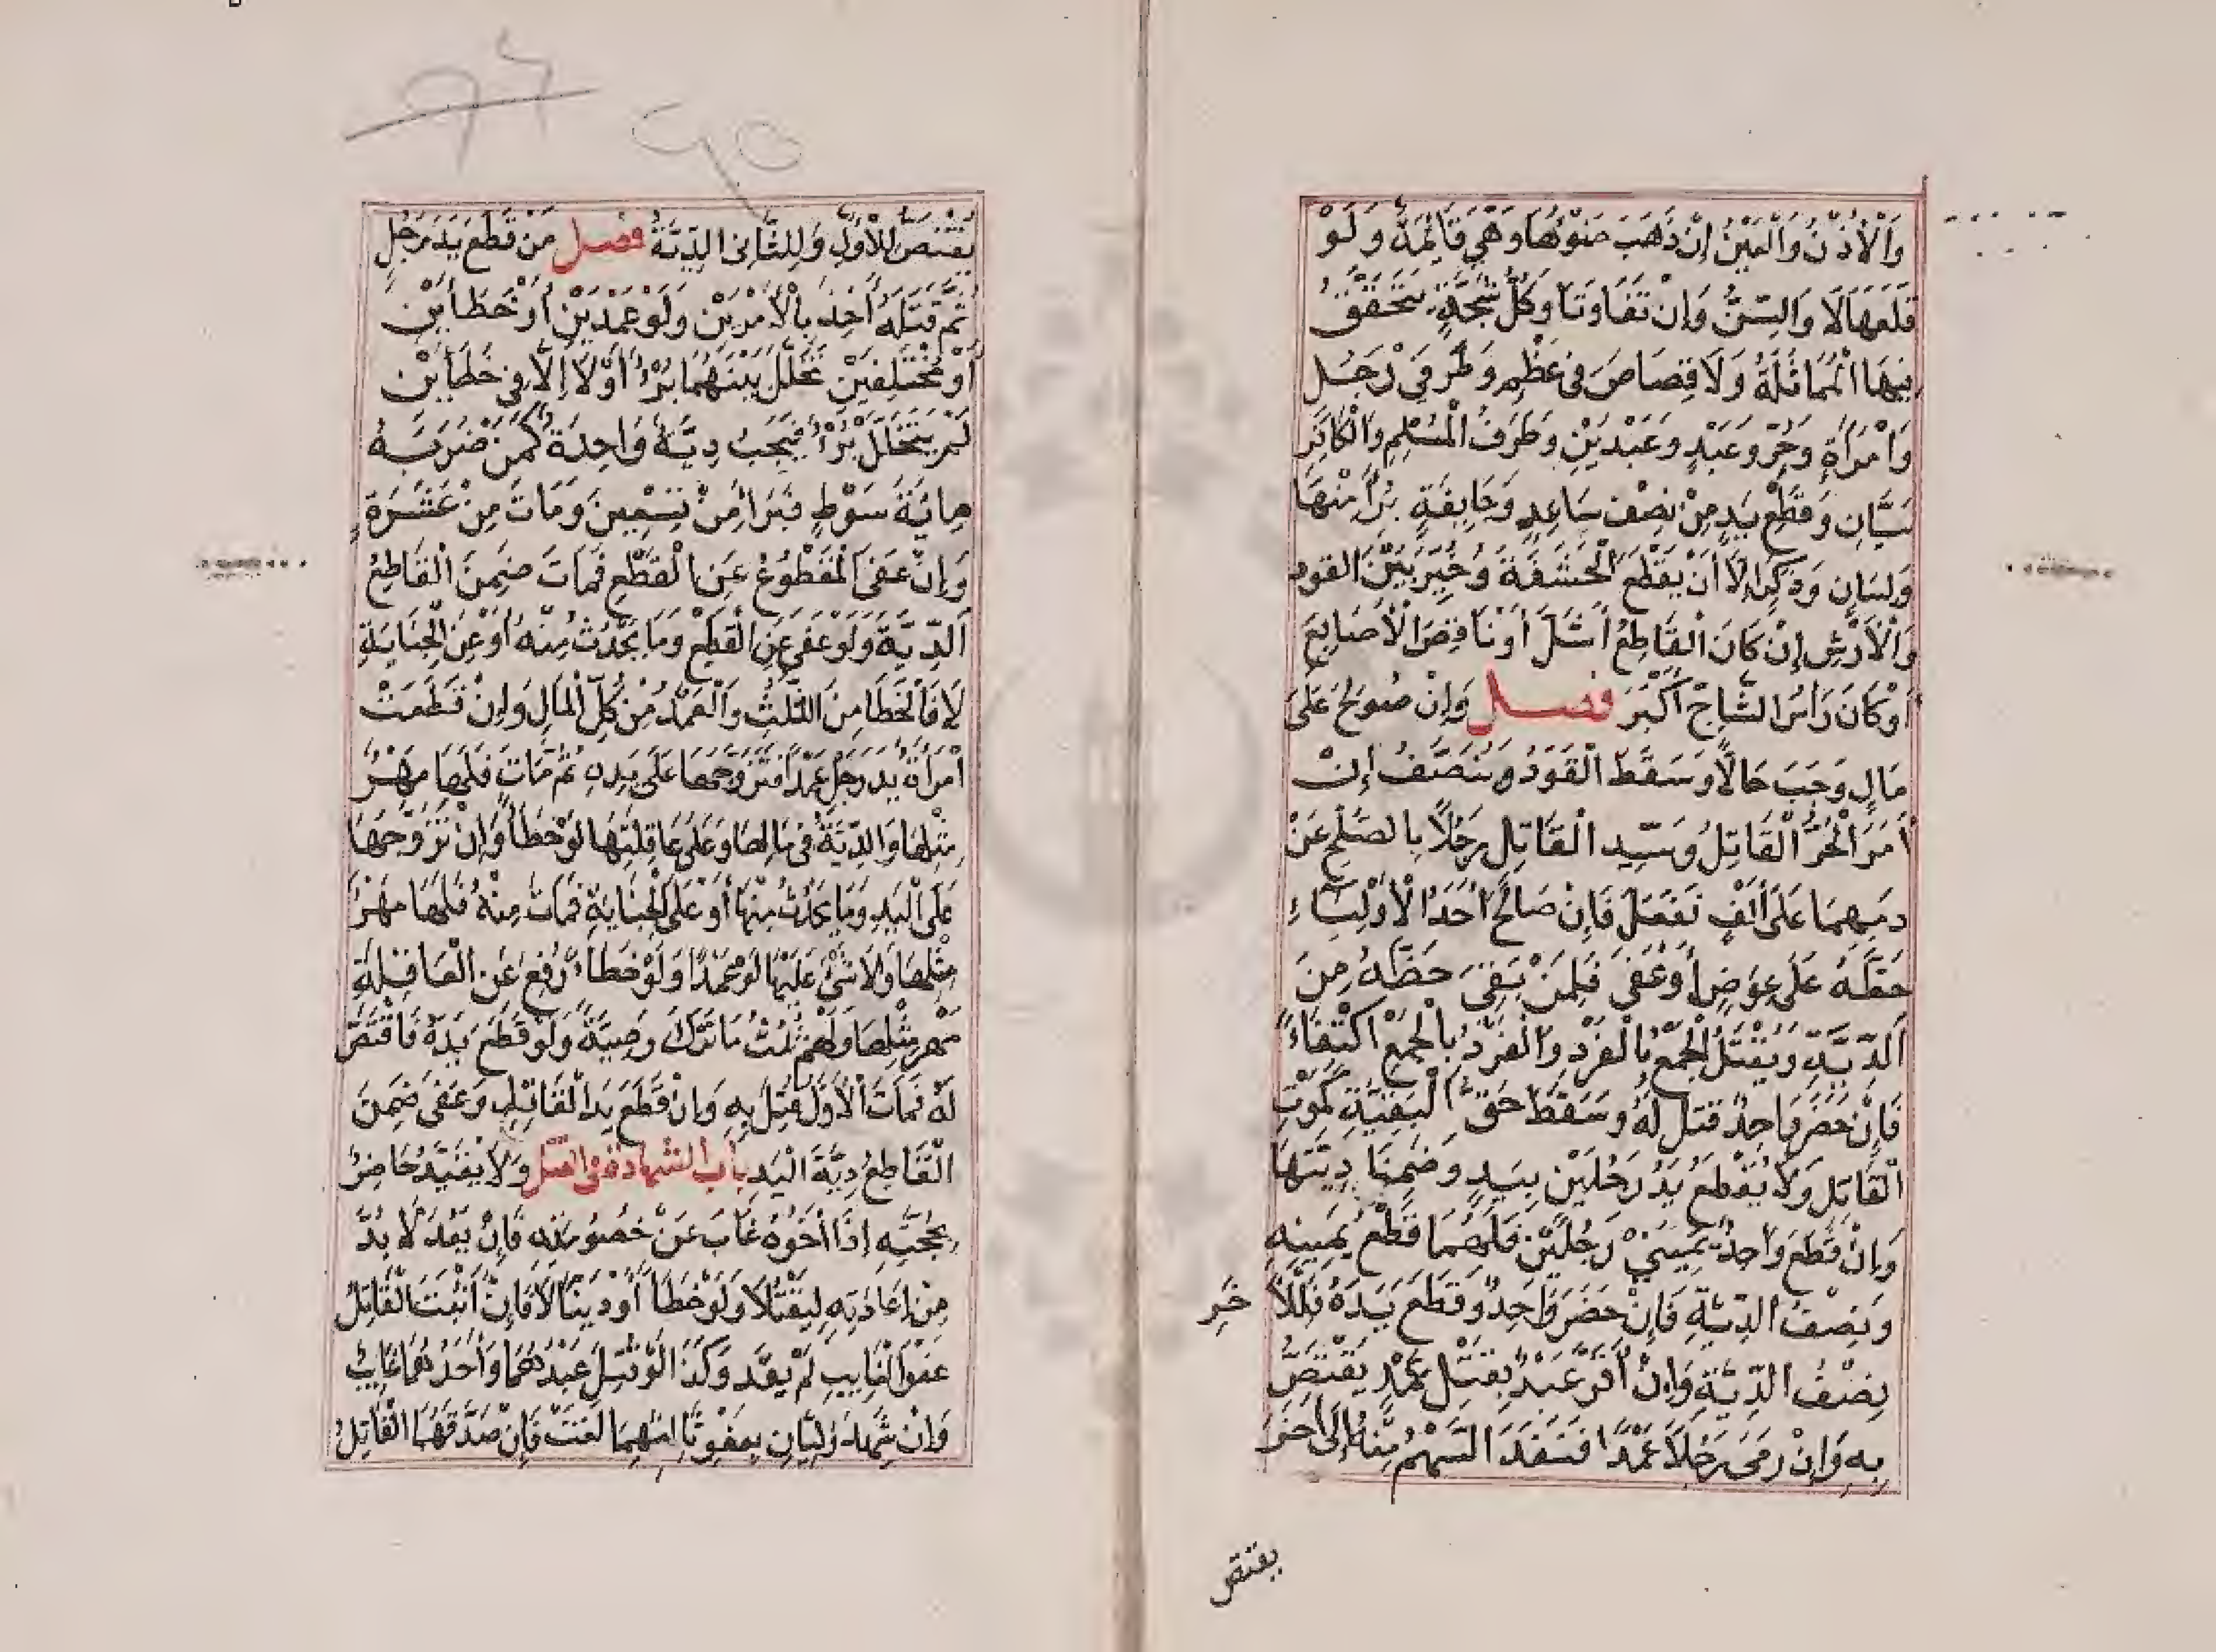 وَالْأُذُنُ وَالْعَيْنُ إِنْ ذَهَبَ ضَوْءُهَا وَهِيَ قَائِمَةٌ وَلَوْ
قَلَعَهَا لَا وَالسِّنُّ وَإِنْ تَفَاوَتَا وَكُلُّ شَجَّةٍ يَتَحَقَّقُ
فِيهَا الْمُمَاثَلَةُ وَلَا قِصَاصَ فِي عَظْمٍ وَطَرَفَيْ رَجُلٍ
وَامْرَأَةٍ وَحُرٍّ وَعَبْدٍ وَعَبْدَيْنِ وَطَرَفُ الْمُسْلِمِ وَالْكَافِرِ
سَيَّانِ وَقَطْعِ يَدٍ مِنْ نِصْفِ سَاعِدٍ وَجَايِفَةٍ بَرَأَ مِنْهَا
وَلِسَانٍ وَذَكَرٍ إِلَّا أَنْ يَقْطَعَ الْحَشَفَةَ وَخُيِّرَ بَيْنَ الْقَوَدِ
وَالْأَرْشِ إِنْ كَانَ الْقَاطِعُ أَشَلَّ أَوْ نَاقِصَ الْأَصَابِعِ
أَوْ كَانَ رَأْسُ الشَّاجِّ أَكْبَرَ فصل وَإِنْ صُولِحَ عَلَى
مَالٍ وَجَبَ حَالًّا وَسَقَطَ الْقَوَدُ وَيُنَصَّفُ إِنْ
أَمَرَ الْحُرُّ الْقَاتِلُ وَسَيِّدُ الْقَاتِلِ رَجُلًا بِالصُّلْحِ عَنْ
دَمِهِمَا عَلَى أَلْفٍ فَفَعَلَ فَإِنْ صَالَحَ أَحَدُ الْأَوْلِيَاءِ
حَظَّهُ عَلَى عِوَضٍ أَوْ عَفَى فَلِمَنْ بَقِيَ حَظُّهُ مِنَ
الدِّيَّةِ وَيُقْتَلُ الْجَمْعُ بِالْفَرْدِ وَالْفَرْدُ بِالْجَمْعِ اكْتِفَاءً
فَإِنْ حَضَرَ وَاحِدٌ قُتِلَ لَهُ وَسَقَطَ حَقُّ الْبَقِيَّةِ كَمَوْتِ
الْقَاتِلِ وَلَا يُقْطَعُ يَدُ رَجُلَيْنِ بِيَدٍ وَضَمِنَا دِيَّتَهَا
وَإِنْ قَطَعَ وَاحِدٌ يَمِينَيْ رَجُلَيْنِ فَلَهُمَا قَطْعُ يَمِينِهِ
وَنِصْفُ الدِّيَّةِ فَإِنْ حَضَرَ وَاحِدٌ وَقَطَعَ يَدَهُ فَلِلْآ خَرِ
نِصْفُ الدِّيَّةِ وَإِنْ أَقَرَّ عَبْدٌ بِقَتْلِ عَمْدٍ يُقْتَصُّ
بِهِ وَإِنْ رَمَى رَجُلًا عَمْدًا فَنَفَذَ السَّهْمُ مِنْهُ إِلَى آخَرَ
يقتص
يُقْتَصُّ لِلْأَوَّلِ وَلِلثَّانِي الدِّيَّةُ فصل مَنْ قَطَعَ يَدَ رَجُلٍ
ثُمَّ قَتَلَهُ أُخِذَ بِالْأَمْرَيْنِ وَلَوْ عَمْدَيْنِ أَوْ خَطَأَيْنِ
أَوْ مُخْتَلِفَيْنِ تَخَلَّلَ بَيْنَهُمَا بُرْءٌ أَوْ لَا إِلَّا فِي خَطَأَيْنِ
لَمْ يَتَخَلَّلْ بُرْأٌ فَيَجِبُ دِيَّةٌ وَاحِدَةٌ كَمَنْ ضَرَبَهُ
مِائَةَ سَوْطٍ فَبَرَأَ مِنْ تِسْعِينَ وَمَاتَ مِنْ عَشَرَةٍ
وَإِنْ عَفَى الْمَقْطُوعُ عَنِ الْقَطْعِ فَمَاتَ ضَمِنَ الْقَاطِعُ
الدِّيَّةَ وَلَوْ عَفَى عَنِ الْقَطْعِ وَمَا يَحْدُثُ مِنْهُ أَوْ عَنِ الْجِنَايَةِ
لَا فَالْخَطَأُ مِنَ الثُّلُثِ وَالْعَمْدُ مِنْ كُلِّ الْمَالِ وَإِنْ قَطَعَتْ
امْرَأَةٌ يَدَ رَجُلٍ عَمْدًا فَتَزَوَّجَهَا عَلَى يَدِهِ ثُمَّ مَاتَ فَلَهَا مَهْرُ
مِثْلِهَا وَالدِّيَّةُ فِي مَالِهَا وَعَلَى عَاقِلَتِهَا لَوْ خَطَأً وَإِنْ تَزَوَّجَهَا
عَلَى الْيَدِ وَمَا يَحْدُثُ مِنْهَا أَوْ عَلَى الْجِنَايَةِ فَمَاتَ مِنْهُ فَلَهَا مَهْرُ
مِثْلِهَا وَلَا شَيْءَ عَلَيْهَا لَوْ عَمْدًا وَلَوْ خَطَأً رُفِعَ عَنِ الْعَاقِلَةِ
مَهْرُ مِثْلِهَا وَلَهُمْ ثُلُثُ مَا تَرَكَ وَصِيَّةً وَلَوْ قَطَعَ يَدَهُ فَاقْتَصَّ
لَهُ فَمَاتَ الْأَوَّلُ قُتِلَ بِهِ وَإِنْ قَطَعَ يَدَ الْقَاتِلِ وَعَفَى ضَمِنَ
الْقَاطِعُ دِيَّةَ الْيَدِ باب الشهادة في القتل وَلَا يُقَيَّدُ حَاضِرٌ
بِحُجَّتِهِ إِذَا أَخُوهُ غَابَ عَنْ خُصُومَتِهِ فَإِنْ يَعُدْ لَا بُدَّ
مِنْ إِعَادَتِهِ لِيَقْتُلَا وَلَوْ خَطَأً أَوْ دَيْنًا لَا فَإِنْ أَثْبَتَ الْقَاتِلُ
عَفْوَ الْغَايِبِ لَمْ يُعَدْ وَكَذَا لَوْ قُتِلَ عَبْدُهُمَا وَأَحَدُهُمَا غَايِبٌ
وَإِنْ شَهِدَ وَلِيَّانِ بِعَفْوِ ثَالِثِهِمَا لَغَتْ فَإِنْ صَدَّقَهُمَا الْقَاتِلُ